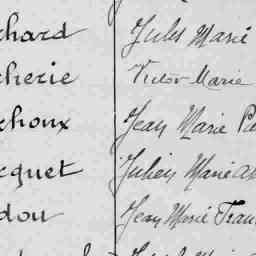 chard Jules Marie
cherie Victor Marie
choux Jean Marie Pie
cquet Julien Marie A
dou Jean Marie Fran